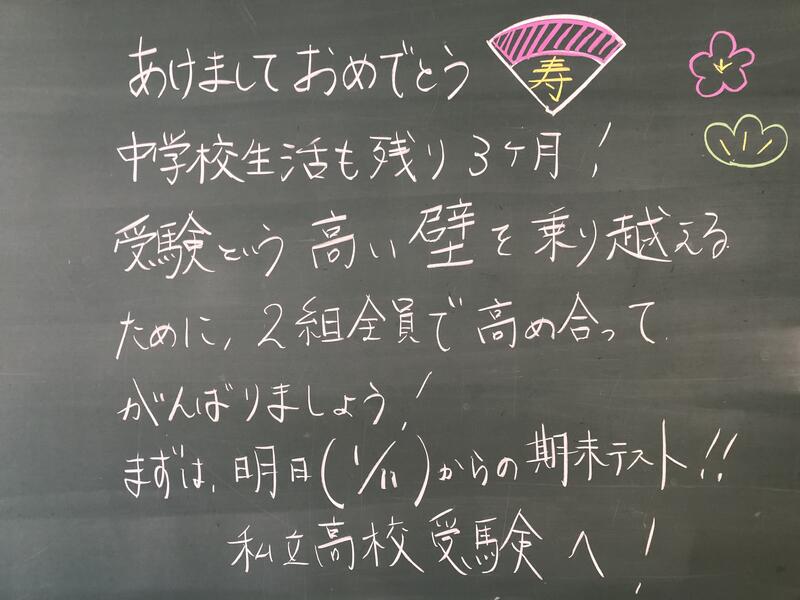 あけましておめでとう
寿
中学校生活も残り3ヶ月!
受験という高い壁を乗り越える
ために、2組全員で高め合って
がんばりましょう!
まずは、明日(1/11)からの期末テスト!!
私立高校受験へ!